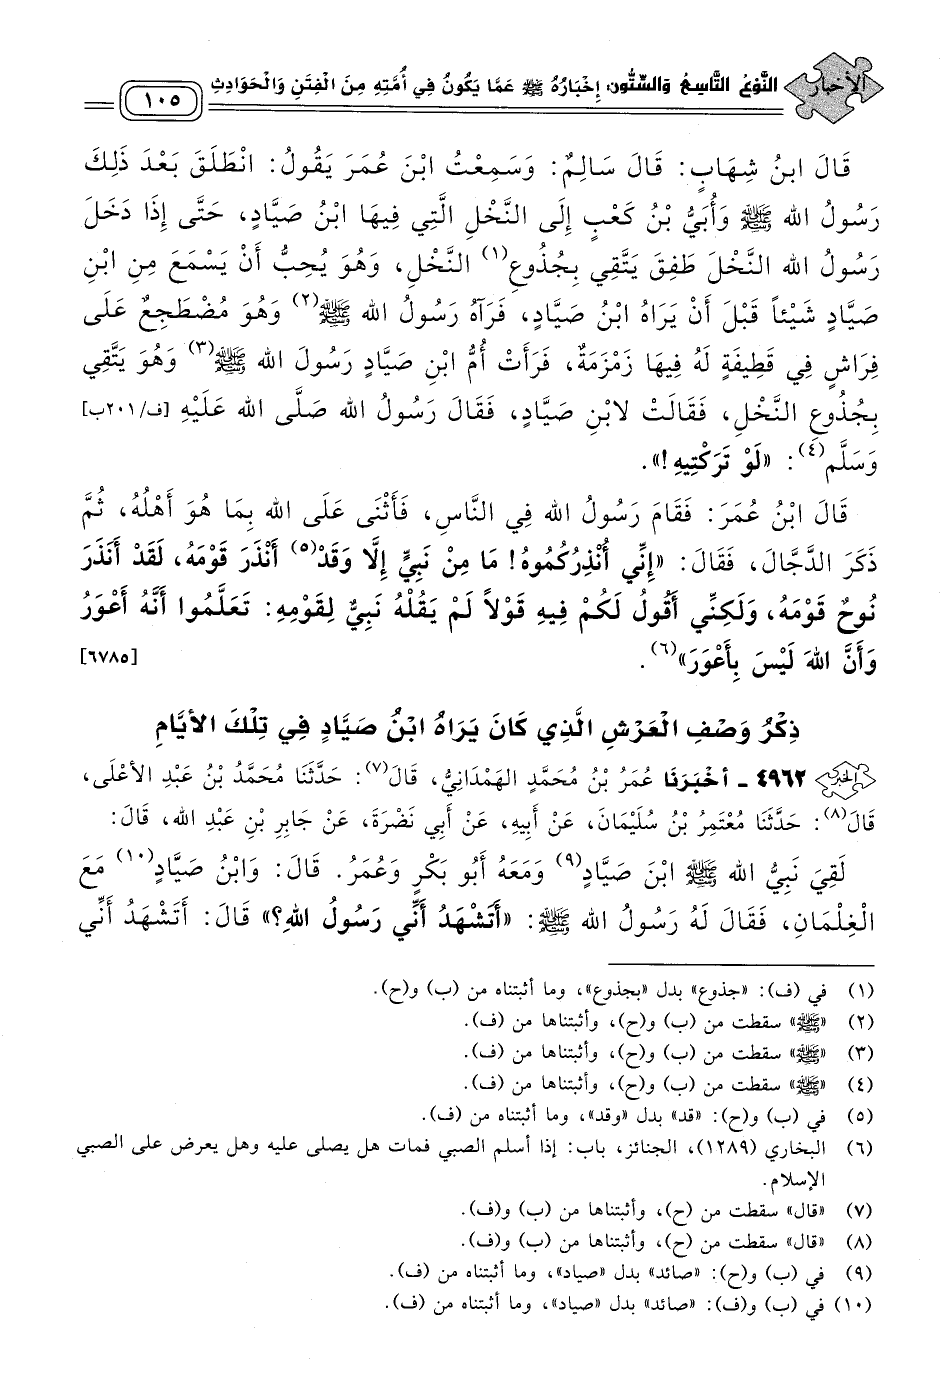 الأخبار
النَّوْعُ التَّاسِعُ وَالسِّتُّونَ: إِخْبَارُهُ ﷺ عَمَّا يَكُونُ فِي أُمَّتِهِ مِنَ الْفِتَنِ وَالْحَوَادِثِ
١٠٥
قَالَ ابنُ شِهَابٍ: قَالَ سَالِمٌ: وَسَمِعْتُ ابْنَ عُمَرَ يَقُولُ: انْطَلَقَ بَعْدَ ذَلِكَ
رَسُولُ الله ﷺ وَأُبَيُّ بْنُ كَعْبٍ إِلَى النَّخْلِ الَّتِي فِيهَا ابْنُ صَيَّادٍ، حَتَّى إِذَا دَخَلَ
رَسُولُ الله النَّخْلَ طَفِقَ يَتَّقِي بِجُذُوعِ(١) النَّخْلِ، وَهُوَ يُحِبُّ أَنْ يَسْمَعَ مِنِ ابْنِ
صَيَّادٍ شَيْئاً قَبْلَ أَنْ يَرَاهُ ابْنُ صَيَّادٍ، فَرَآهُ رَسُولُ الله ﷺ(٢) وَهُوَ مُضْطَجِعٌ عَلَى
فِرَاشٍ فِي قَطِيفَةٍ لَهُ فِيهَا زَمْزَمَةٌ، فَرَأَتْ أُمُّ ابْنِ صَيَّادٍ رَسُولَ الله ﷺ(٣) وَهُوَ يَتَّقِي
بِجُذُوعِ النَّخْلِ، فَقَالَتْ لابْنِ صَيَّادٍ، فَقَالَ رَسُولُ الله صَلَّى الله عَلَيْهِ [ف/٢٠١ب]
وَسَلَّم(٤): «لَوْ تَرَكْتِيهِ!».
قَالَ ابْنُ عُمَرَ: فَقَامَ رَسُولُ الله فِي النَّاسِ، فَأَثْنَى عَلَى الله بِمَا هُوَ أَهْلُهُ، ثُمَّ
ذَكَرَ الدَّجَّالَ، فَقَالَ: «إِنِّي أُنْذِرُكُمُوهُ! مَا مِنْ نَبِيٍّ إِلَّا وَقَدْ(٥) أَنْذَرَ قَوْمَهُ، لَقَدْ أَنْذَرَ
نُوحٌ قَوْمَهُ، وَلَكِنِّي أَقُولُ لَكُمْ فِيهِ قَوْلاً لَمْ يَقُلْهُ نَبِيٌّ لِقَوْمِهِ: تَعَلَّمُوا أَنَّهُ أَعْوَرُ
وَأَنَّ اللهَ لَيْسَ بِأَعْوَرَ»(٦). [٦٧٨٥]
ذِكْرُ وَصْفِ الْعَرْشِ الَّذِي كَانَ يَرَاهُ ابْنُ صَيَّادٍ فِي تِلْكَ الأيَّامِ
الخبر ٤٩٦٢ - أخْبَرَنَا عُمَرُ بْنُ مُحَمَّدٍ الهَمْدَانِيُّ، قَالَ(٧): حَدَّثَنَا مُحَمَّدُ بْنُ عَبْدِ الأعْلَى،
قَالَ(٨): حَدَّثَنَا مُعْتَمِرُ بْنُ سُلَيْمَانَ، عَنْ أَبِيهِ، عَنْ أَبِي نَضْرَةَ، عَنْ جَابِرِ بْنِ عَبْدِ الله، قَالَ:
لَقِيَ نَبِيُّ الله ﷺ ابْنَ صَيَّادٍ(٩) وَمَعَهُ أَبُو بَكْرٍ وَعُمَرُ. قَالَ: وَابْنُ صَيَّادٍ(١٠) مَعَ
الْغِلْمَانِ، فَقَالَ لَهُ رَسُولُ الله ﷺ: «أَتَشْهَدُ أَنِّي رَسُولُ اللهِ؟» قَالَ: أَتَشْهَدُ أَنِّي
(١) في (ف): «جذوع» بدل «بجذوع»، وما أثبتناه من (ب) و(ح).
(٢) «ﷺ» سقطت من (ب) و(ح)، وأثبتناها من (ف).
(٣) «ﷺ» سقطت من (ب) و(ح)، وأثبتناها من (ف).
(٤) «ﷺ» سقطت من (ب) و(ح)، وأثبتناها من (ف).
(٥) في (ب) و(ح): «قد» بدل «وقد»، وما أثبتناه من (ف).
(٦) البخاري (١٢٨٩)، الجنائز، باب: إذا أسلم الصبي فمات هل يصلى عليه وهل يعرض على الصبي
الإسلام.
(٧) «قال» سقطت من (ح)، وأثبتناها من (ب) و(ف).
(٨) «قال» سقطت من (ح)، وأثبتناها من (ب) و(ف).
(٩) في (ب) و(ح): «صائد» بدل «صياد»، وما أثبتناه من (ف).
(١٠) في (ب) و(ف): «صائد» بدل «صياد»، وما أثبتناه من (ف).